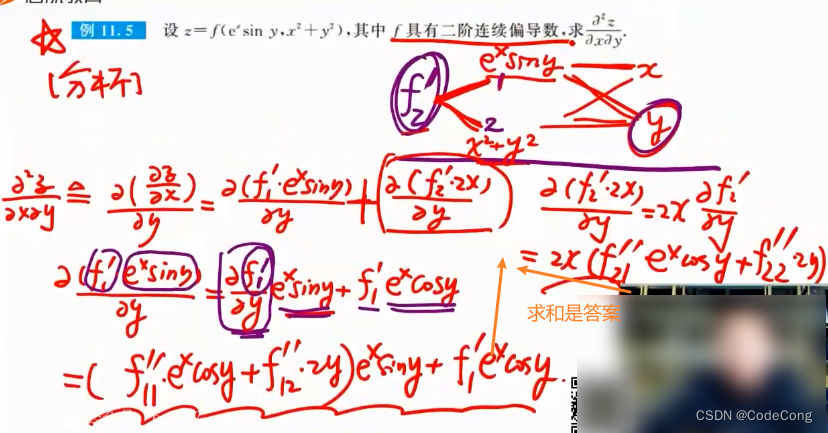 例 11.5 设 z=f(eˣsin y,x²+y²),其中 f 具有二阶连续偏导数,求 ∂²z/∂x∂y.
[分析]
f₂′ eˣsiny x
1
2 y
x²+y²
∂²z/∂x∂y ≜ ∂(∂z/∂x)/∂y = ∂(f₁′·eˣsiny)/∂y + ∂(f₂′·2x)/∂y
∂(f₂′·2x)/∂y = 2x ∂f₂′/∂y
= 2x(f₂₁″ eˣcosy + f₂₂″ 2y)
∂(f₁′ eˣsiny)/∂y = ∂f₁′/∂y eˣsiny + f₁′ eˣcosy
求和是答案
=( f₁₁″·eˣcosy + f₁₂″·2y)eˣsiny + f₁′eˣcosy.
CSDN @CodeCong